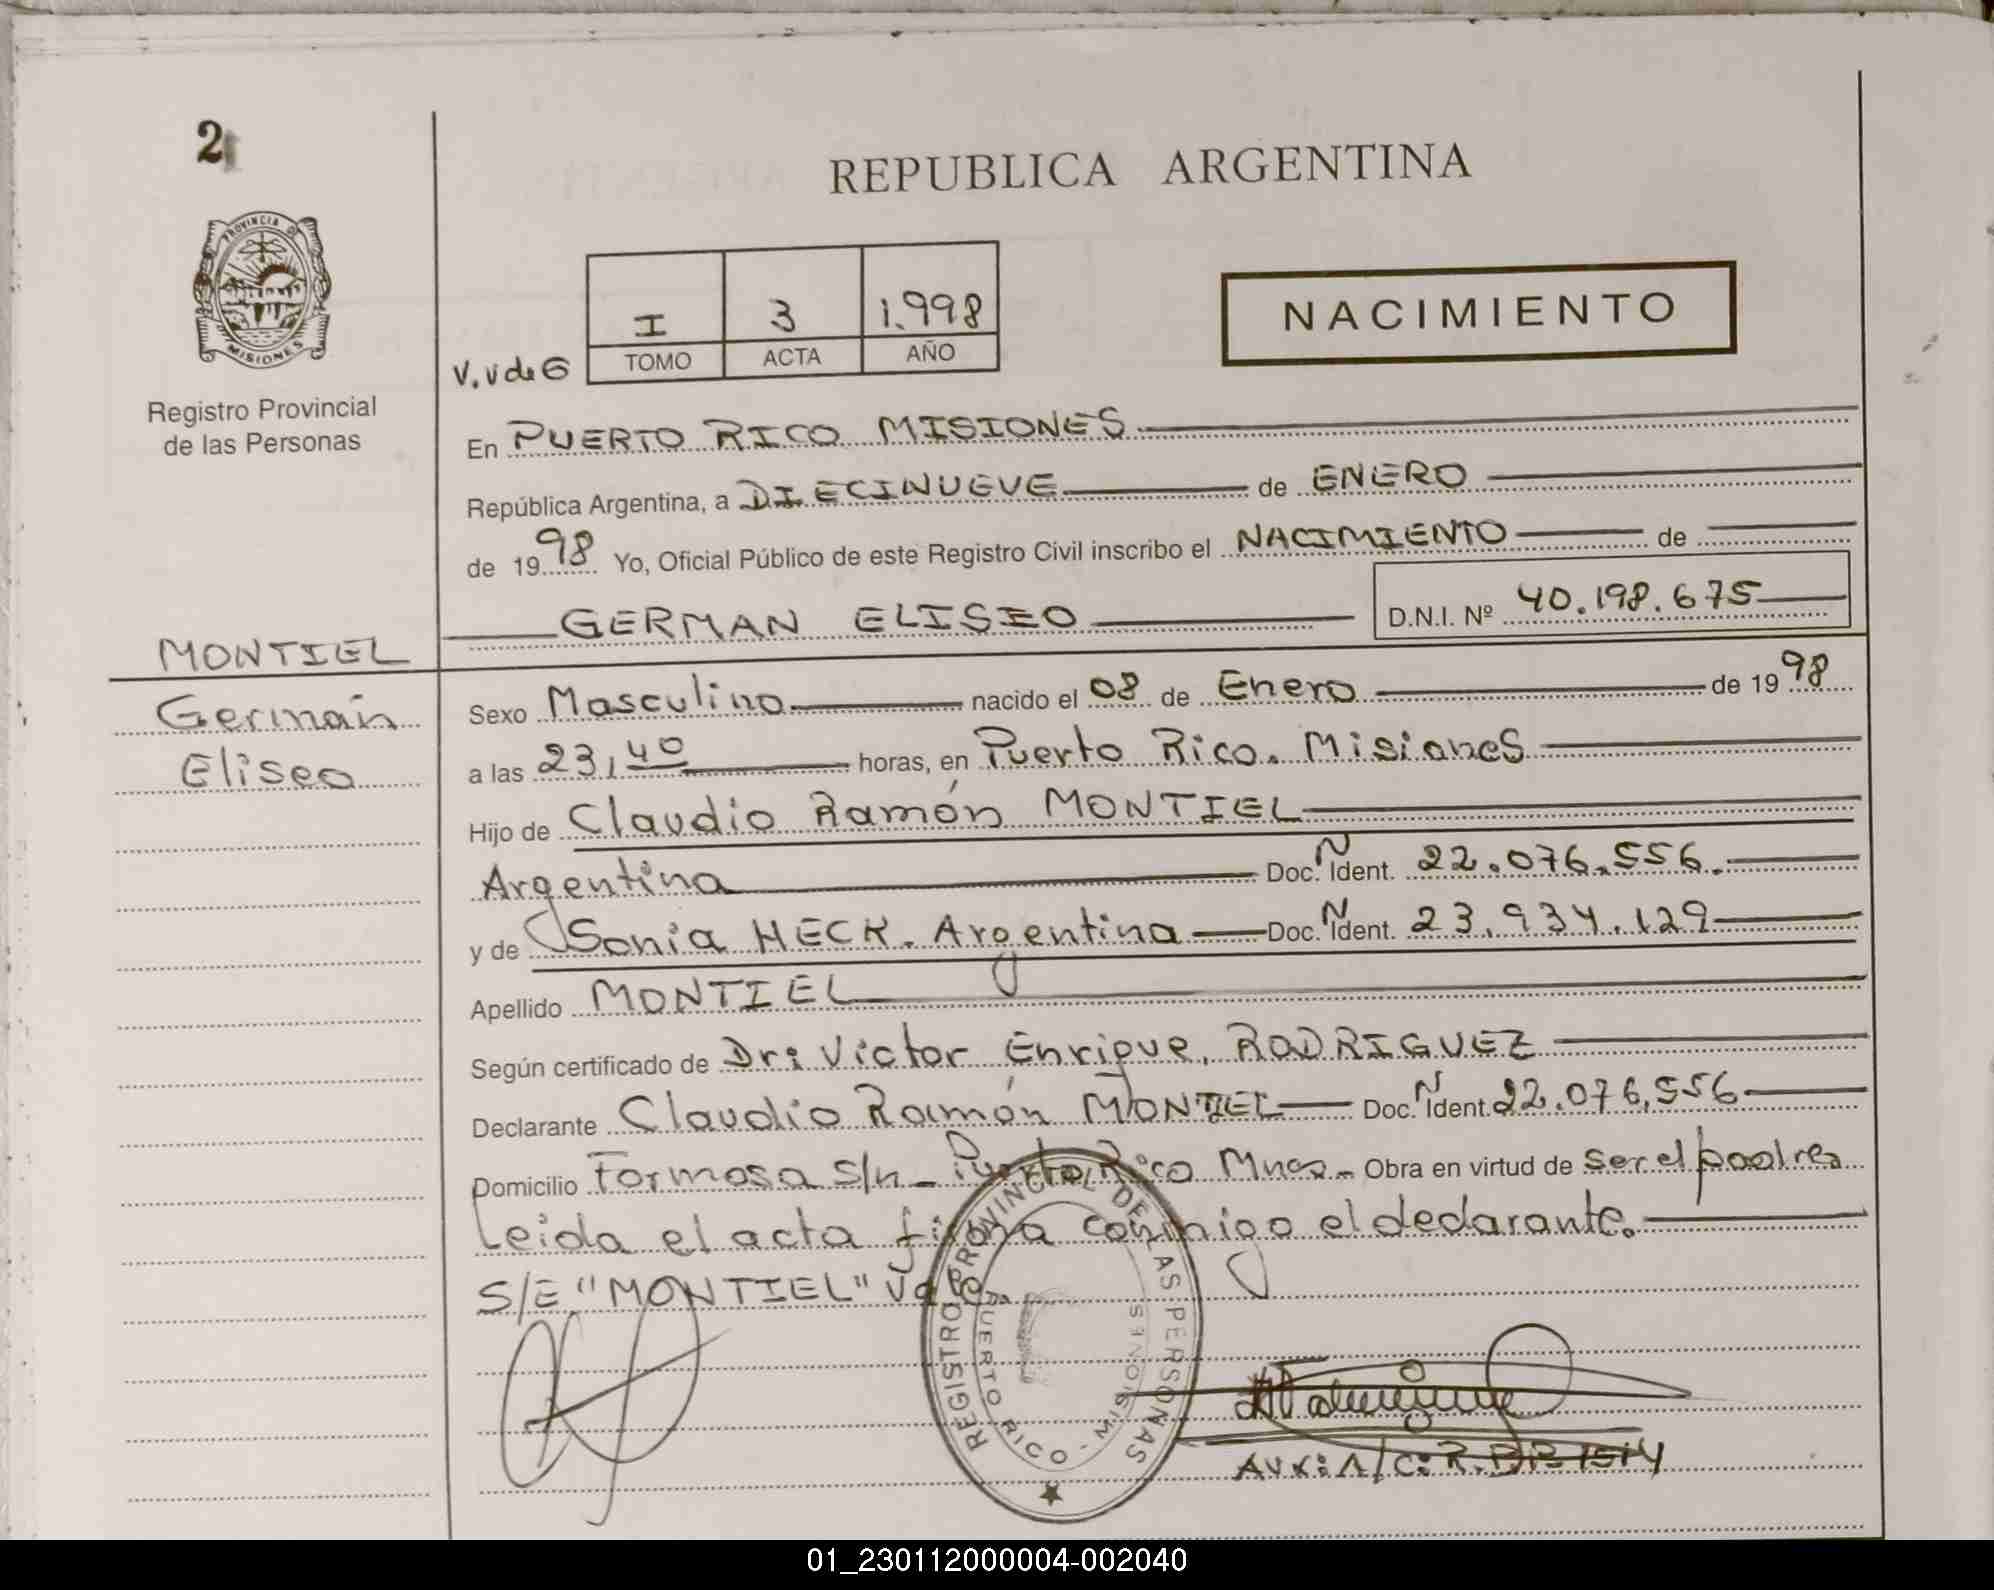 2
REPUBLICA ARGENTINA
PROVINCIA DE
MISIONES
Registro Provincial
de las Personas
I 3 1.998
TOMO ACTA AÑO
NACIMIENTO
V.V de G
En PUERTO RICO MISIONES
República Argentina, a DIECINUEVE de ENERO
de 1998 Yo, Oficial Público de este Registro Civil inscribo el NACIMIENTO de
GERMAN ELISEO D.N.I. Nº 40.198.675
MONTIEL
Germán
Eliseo
Sexo Masculino nacido el 08 de Enero de 1998
a las 23,40 horas, en Puerto Rico. Misiones
Hijo de Claudio Ramón MONTIEL
Argentina Doc. N Ident. 22.076.556.
y de Sonia HECK. Argentina Doc. N Ident. 23.934.129
Apellido MONTIEL
Según certificado de Dr: Victor Enrique, RODRIGUEZ
Declarante Claudio Ramón MONTIEL Doc. N Ident. 22.076,556
Domicilio Formosa S/n - Puerto Rico Mnes - Obra en virtud de ser el padre
Leida el acta firma conmigo el declarante.
S/E "MONTIEL" Vale.
REGISTRO PROVINCIAL DE LAS PERSONAS
PUERTO RICO - MISIONES
AUX: A/C: R.
01_230112000004-002040